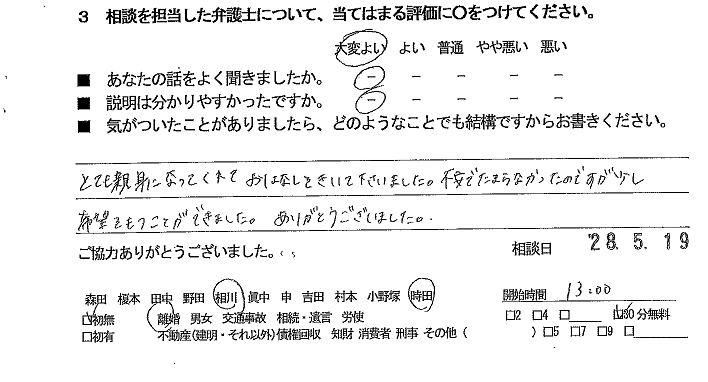 3 相談を担当した弁護士について、当てはまる評価に○をつけてください。
大変よい よい 普通 やや悪い 悪い
■ あなたの話をよく聞きましたか。 － － － － －
■ 説明は分かりやすかったですか。 － － － － －
■ 気がついたことがありましたら、どのようなことでも結構ですからお書きください。
とても親身になってくれて おはなしをきいて下さいました。不安でたまらなかったのですが少し
希望をもつことができました。 ありがとうございました。
ご協力ありがとうございました。
相談日 '28.5.19
森田 榎本 田中 野田 相川 眞中 申 吉田 村本 小野塚 時田
開始時間 13:00
□初無 離婚 男女 交通事故 相続・遺言 労使 □2 □4 □ □30分無料
□初有 不動産(建明・それ以外)債権回収 知財 消費者 刑事 その他 ( ) □5 □7 □9 □